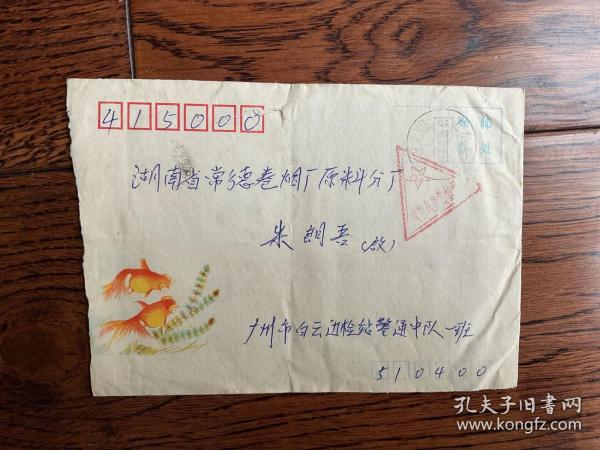 415000
贴邮
票处
湖南省常德卷烟厂原料分厂
朱朗吾(收)
广州市白云边检站警通中队一班
510400
孔夫子旧书网
www.kongfz.com